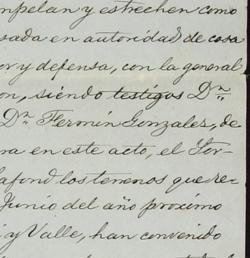 mpelan y estrechen como
sada en autoridad de cosa
or y defensa, con la general
on, siendo testigos Dn
Dn Fermín Gonzalez, de
na en este acto, el Ter-
lafond los terrenos que re-
Junio del año proximo
. y Valle, han convenido